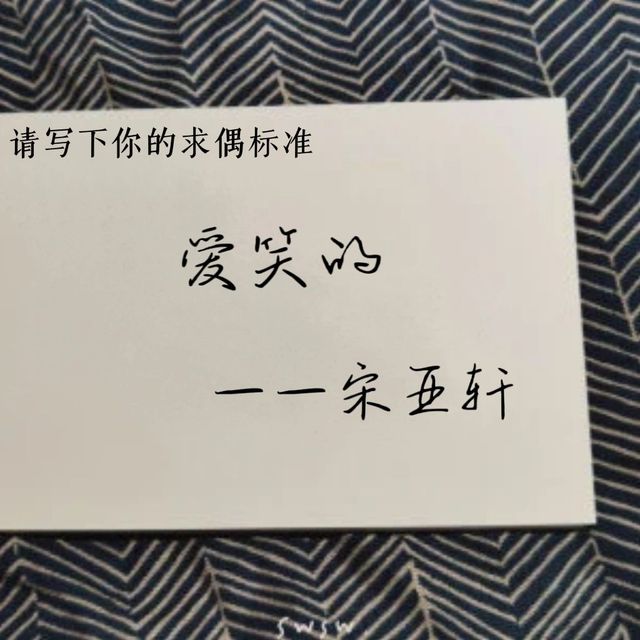 请写下你的求偶标准
爱笑的
——宋亚轩
swsw.